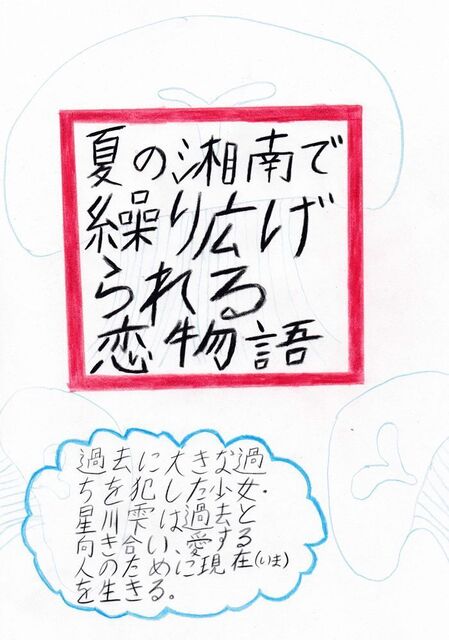 夏の湘南で
繰り広げ
られる
恋物語
過去に大きな過
ちを犯した少女・
星川雫は過去と
向き合い、愛する
人のために現在(いま)
を生きる。